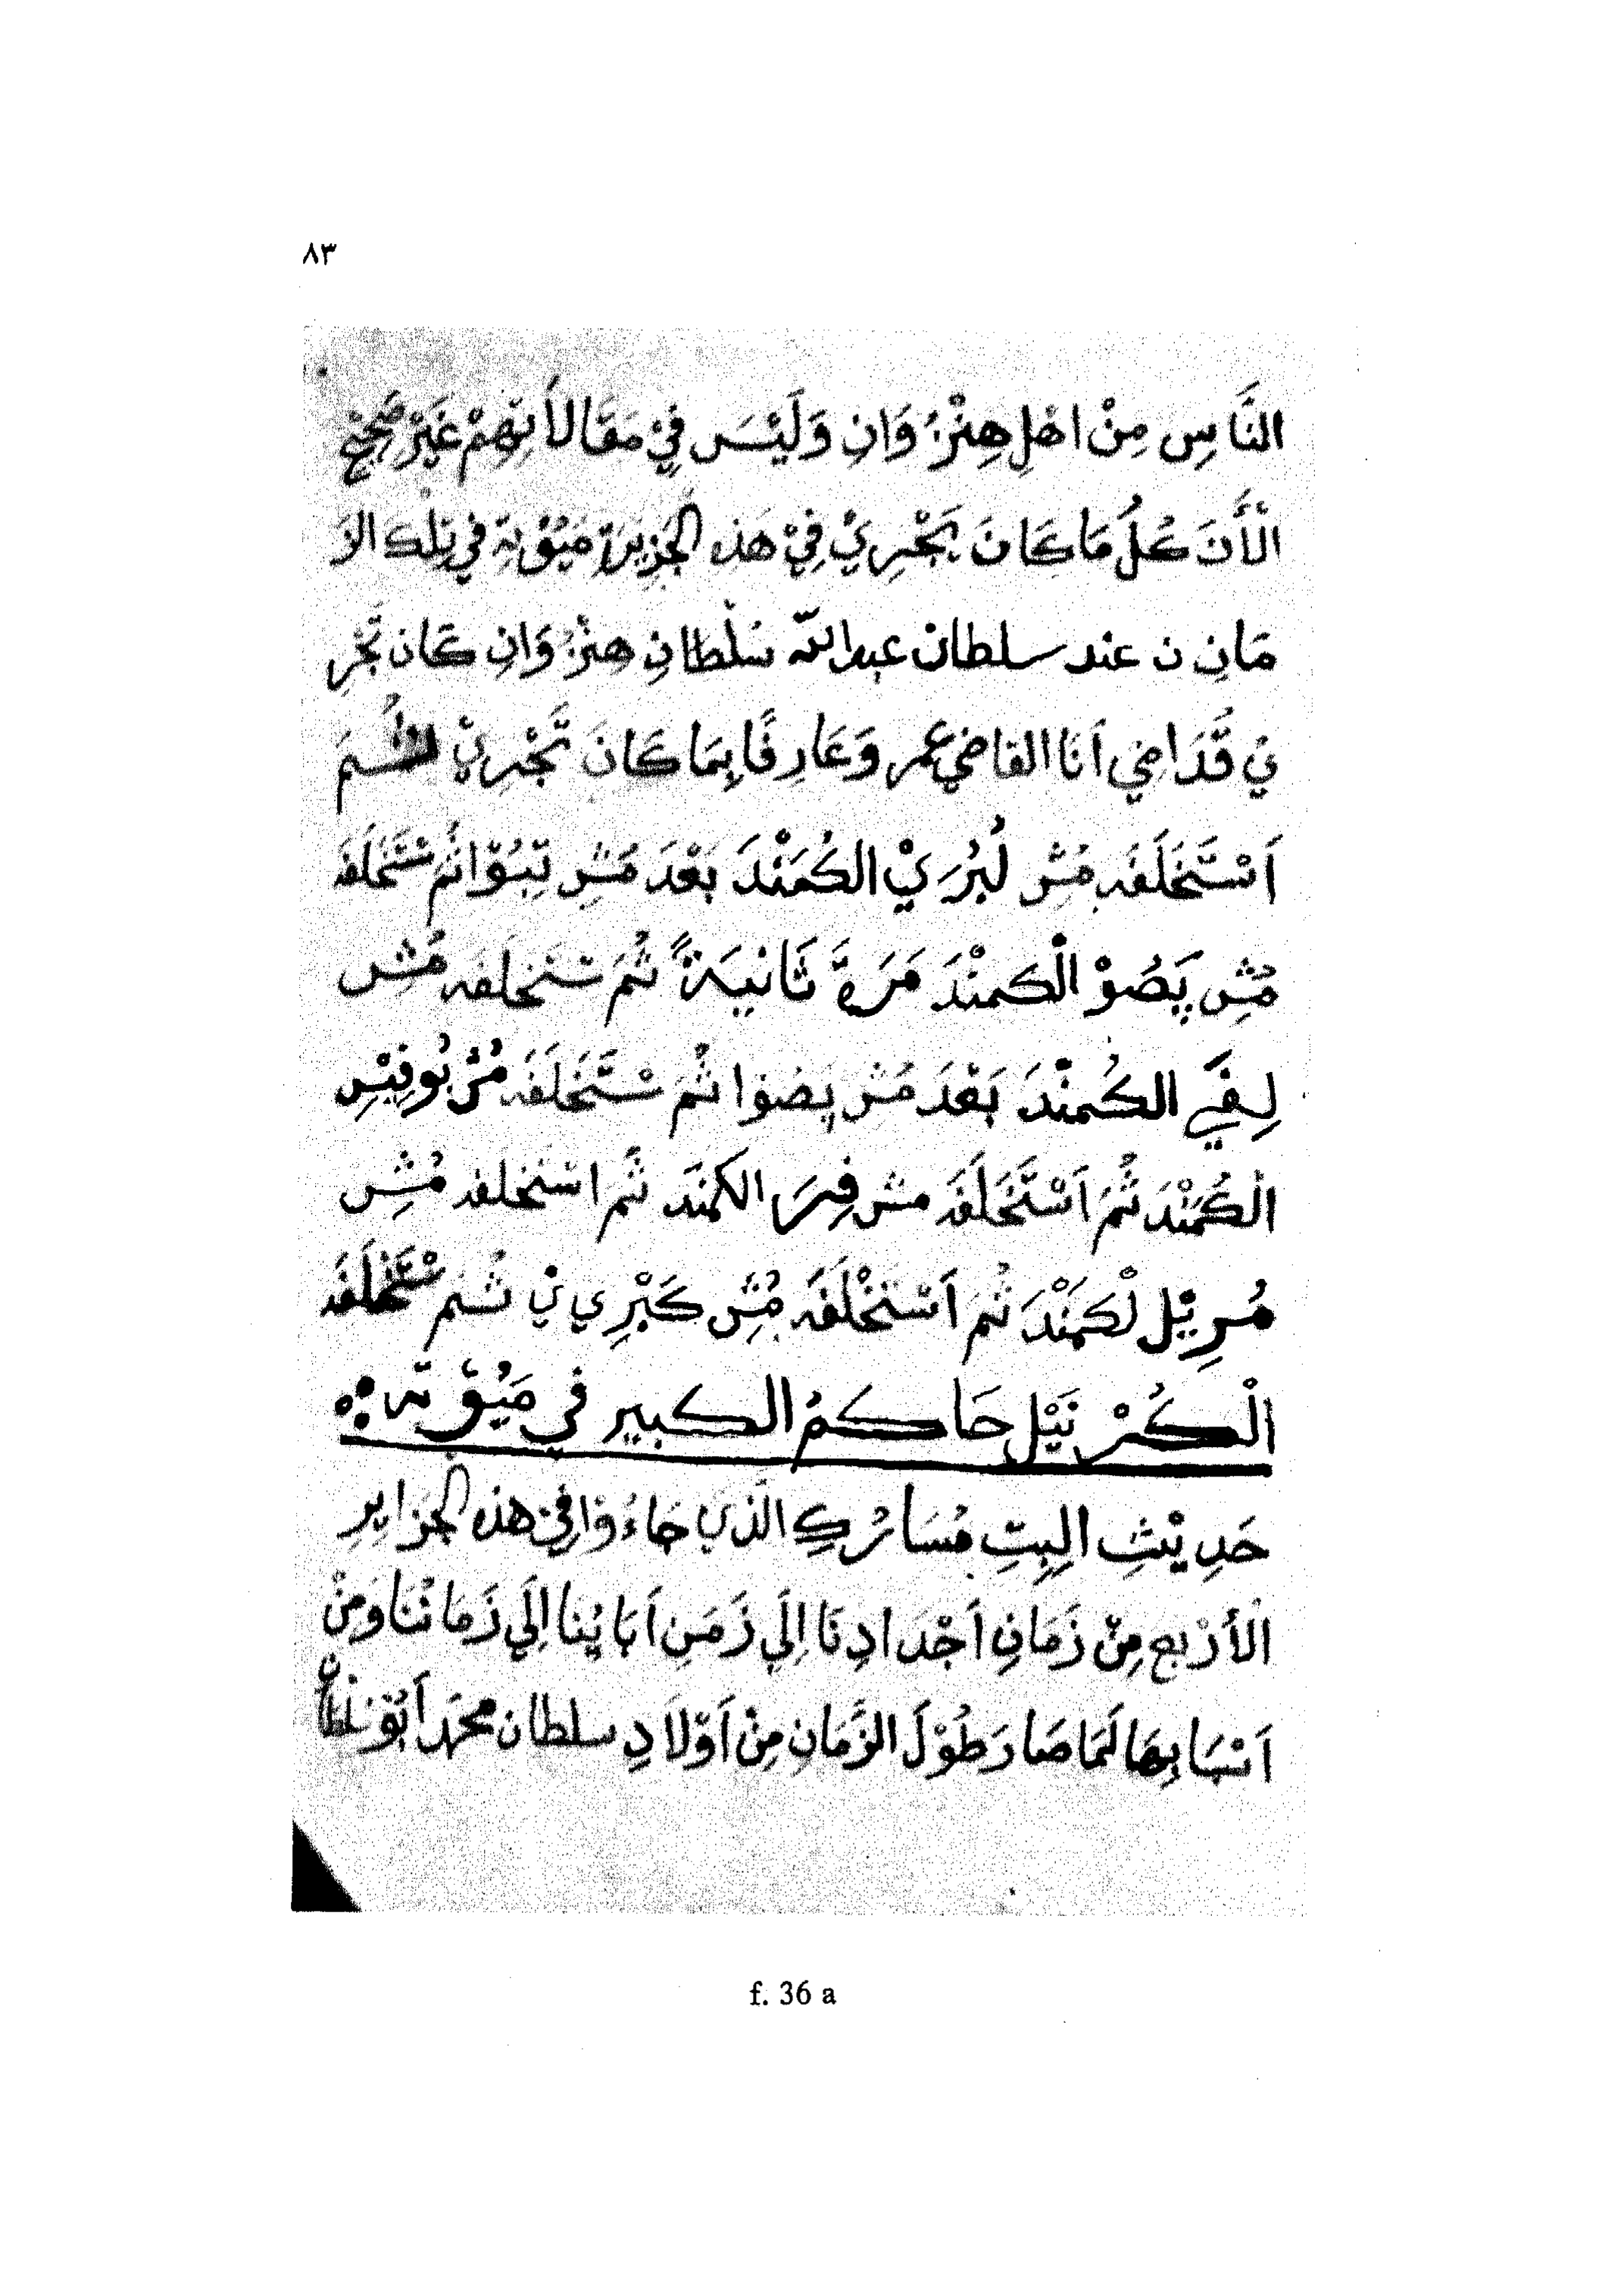 ٨٣
النَّاسِ مِنْ اهْلِ هِنْزُ وَانِ وَلَيْسَ فِيْ مَقَالاَتِهِمْ غَيْرُ صَحِيْحٍ
الْأَنَ كُلُ مَا كَانَ يَجْرِيْ فِيْ هَذه الجَزِيْرَة مَيُوْتَة فِي تِلْكَ الزَ
مَانِ ن عند سلطان عبد الله سُلْطانِ هِنْزُ وَانِ كَان تَجْرِ
يْ قَدَامِي اَنَا القاضي عمر وَعَارِفًا بِمَا كَانَ تَجْرِيْ ثُمَ
اَسْتَخْلَفَه مُشِ لُبُرَيْ الكُمَنْدَ بَعْدَ مُشِ تِبُوْا ثُم سْتَخْلَفَه
مُشِ پَصُوْ الْكمنْدَ مَرَةً ثَانيَةً ثُمَ سْتخلفه مُشِ
لِفَيْ الكُمنْدَ بَعْدَ مُش پَصُوا ثُمَ سْتَخْلَفَه مُشْ بُوفِيْسِ
الْكُمَنْدَ ثُمَ اَسْتَخْلَفَه مش فِرَ الكمنَد ثُم اسْتخلفه مُشِ
مُرِيْل لْكمَنْدَ ثُمَ اَسْتخْلَفَه مُشِ كَبْرِي يْ ثُم سْتَخْلَفَه
الْكُرْنَيْل حَاكمُ الكبير في مَيُوْتَه
حَدِيْثِ البِتِ مُسَارُكِ الَّذي جَاءُوا فِيْ هذه الجزاير
الأرْبع مِنْ زَمَانِ اَجْدَادِنَا اِلَي زَمَنِ اَبَائِنا اِلَي زَمانُنَا وَمِنْ
اَسْبَابِهَا لَمَا صَارَ طُوْلَ الزَّمَانِ مِنْ اَوْلاَدِ سلطان محمد اَبُوْ سُلطان
f. 36 a